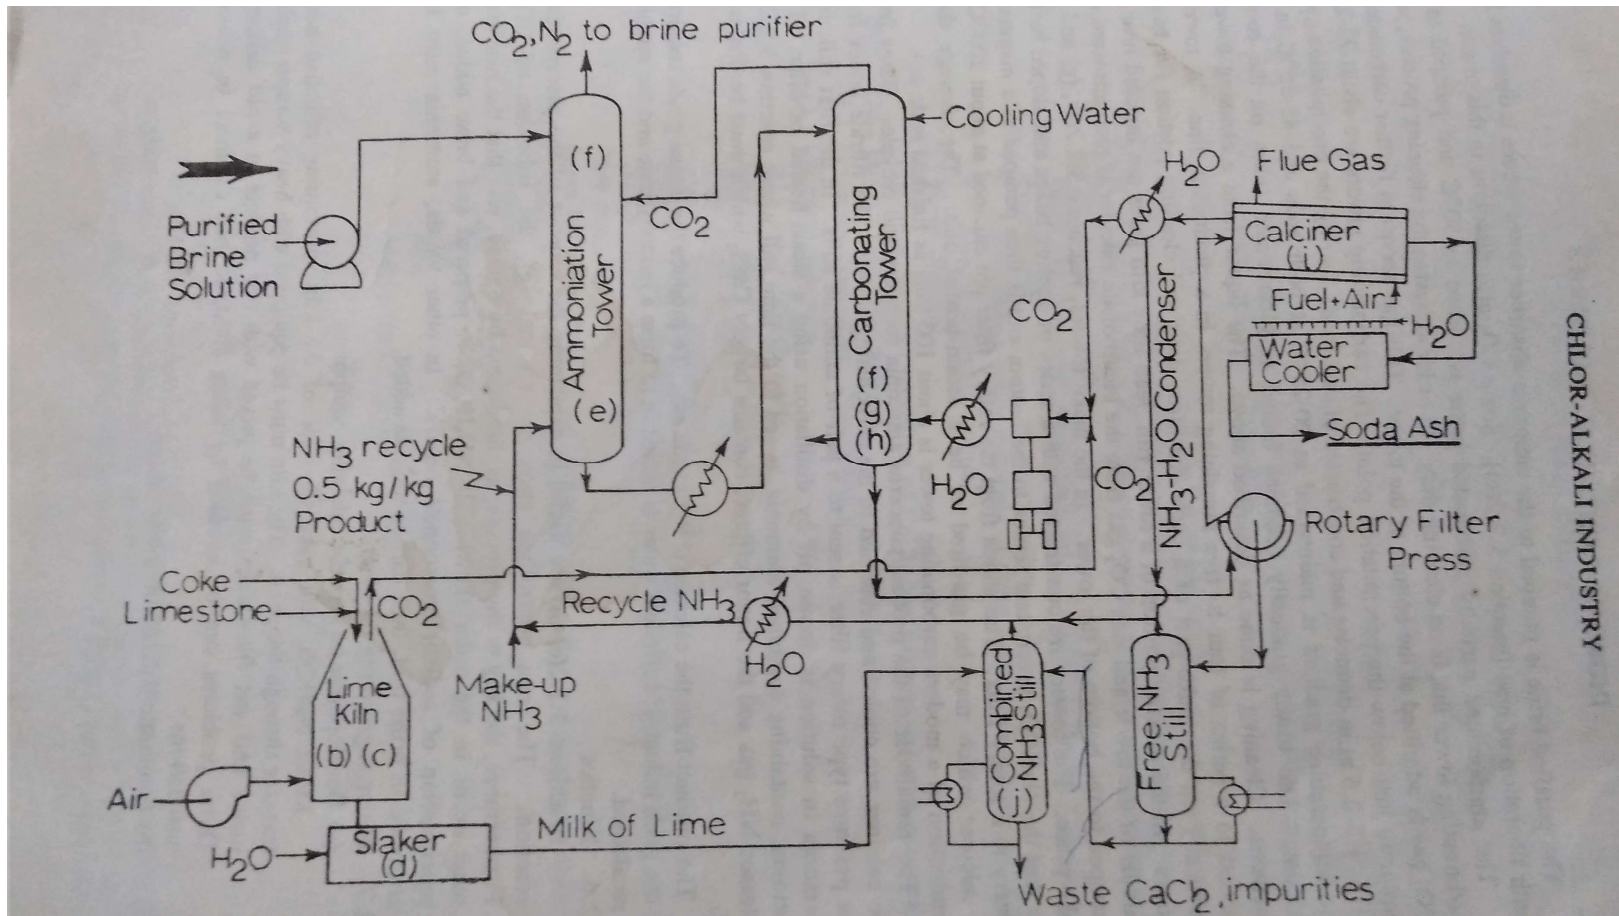 CO2,N2 to brine purifier
Cooling Water
(f)
Ammoniation
Tower
(e)
CO2
Carbonating
Tower
(f)
(g)
(h)
Purified
Brine
Solution
H2O
Flue Gas
Calciner
(i)
Fuel+Air
H2O
Water
Cooler
Soda Ash
CO2
NH3-H2O Condenser
CO2
H2O
Rotary Filter
Press
NH3 recycle
0.5 kg/kg
Product
Coke
Limestone
CO2
Recycle NH3
H2O
Make-up
NH3
Lime
Kiln
(b) (c)
Air
H2O
Slaker
(d)
Milk of Lime
(j) Combined
NH3 Still
Free NH3
Still
Waste CaCl2, impurities
CHLOR-ALKALI INDUSTRY